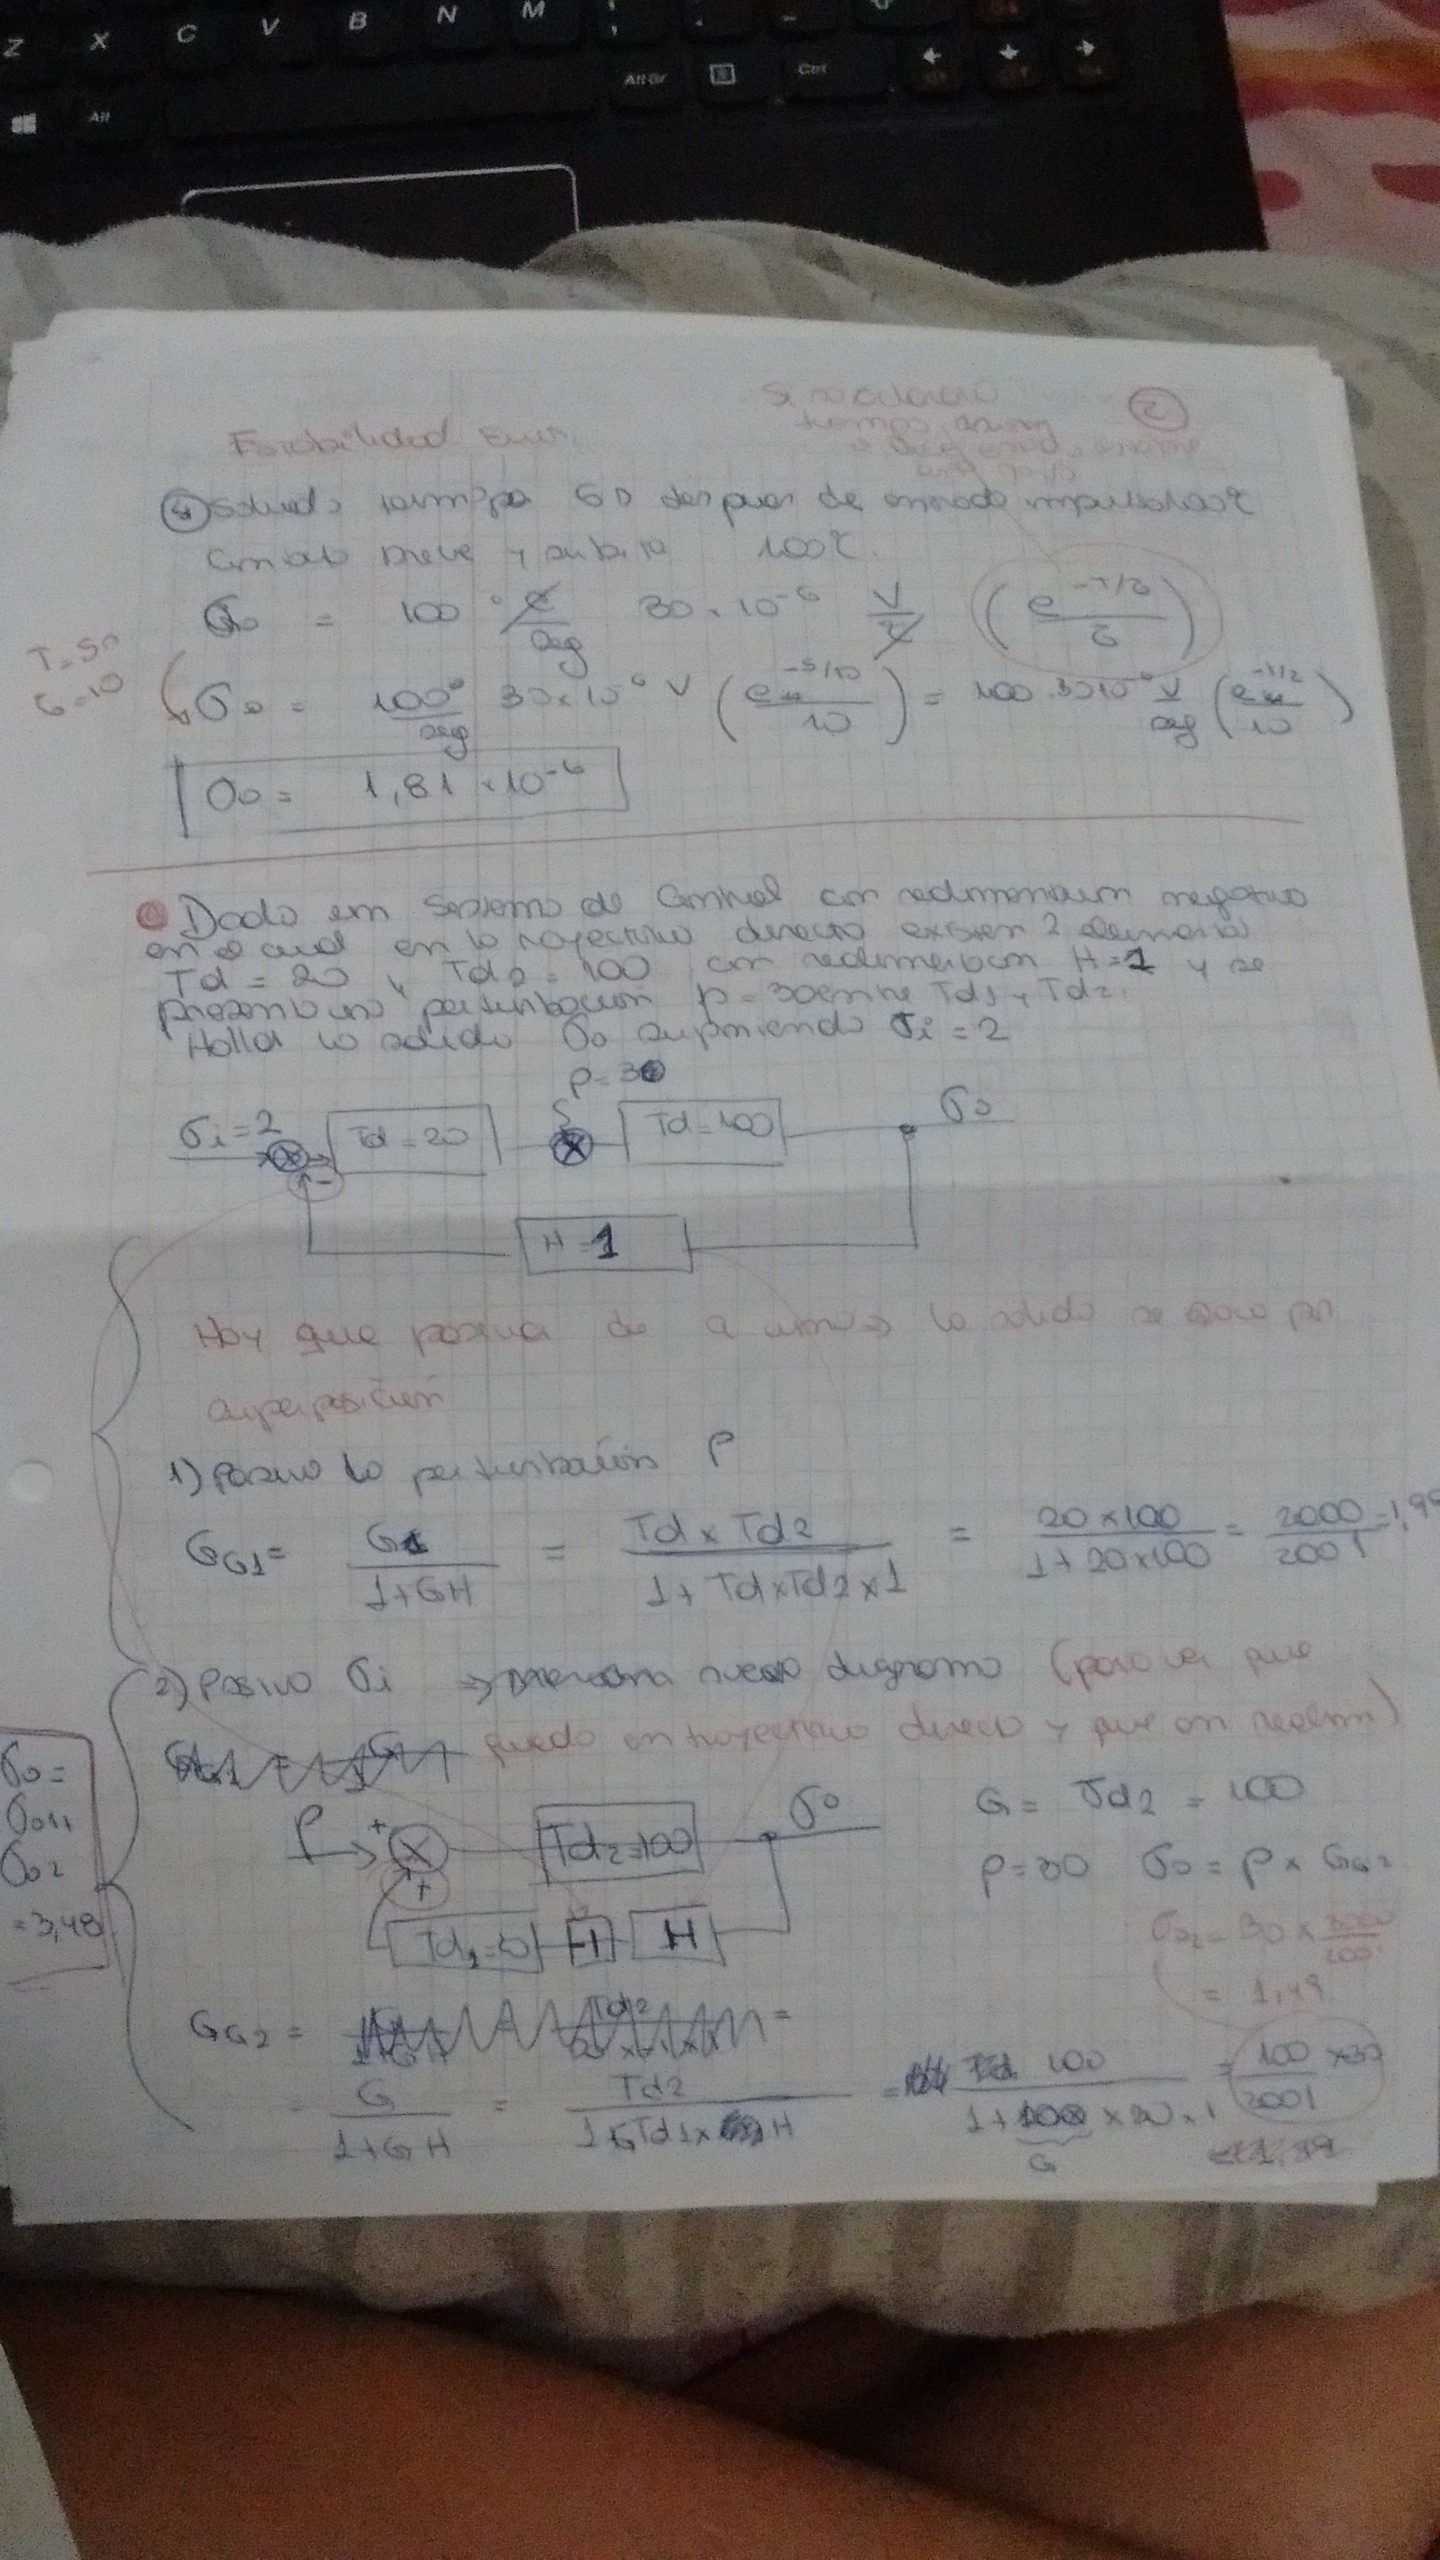 Z X C V B N M
Alt Alt Gr Ctrl
Estabilidad
②
tiempo
④ Salida termopar 5s después de entrada impulso 100°C
Cambio breve y súbito 100°C.
σo = 100 °C/seg 30 × 10⁻⁶ V/°C (e^(-T/τ) / τ)
T = 5s
τ = 10
σo = 100°/seg 30 × 10⁻⁶ V (e^(-5/10) / 10) = 100 · 30 10⁻⁶ V/seg (e^(-1/2) / 10)
σo = 1,81 × 10⁻⁶
Dado em sistema de Control con realimentación negativo
en el cual en la trayectoria directa existen 2 elementos
Td = 20 y Td2 = 100 con realimentación H = 1 y se
presenta una perturbación p = 30 entre Td1 y Td2.
Halla la salida σo suponiendo σi = 2
p = 30
σi = 2 Td = 20 Td = 100 σo
−
H = 1
Hay que pasivar de a uno → la salida se saca por
superposición
1) Pasivo la perturbación P
GG1 = G1 / (1+GH) = Td × Td2 / (1 + Td×Td2×1) = 20 × 100 / (1 + 20×100) = 2000 / 2001 = 1,99
2) Pasivo σi ⇒ nuevo diagrama (para ver que
queda en trayectoria directa y que en realim)
P + Td2 = 100 σo
+
Td1 = 20 -1 H
G = Td2 = 100
P = 30 σo = P × GG2
σo2 = 30 × /2001
= 1,49
σo =
σo1+
σo2
= 3,48
GG2 =
= G / (1+GH) = Td2 / (1 G Td1 × H) = 100 / (1 + 100 × 20 × 1) = 100/2001 × 30
G